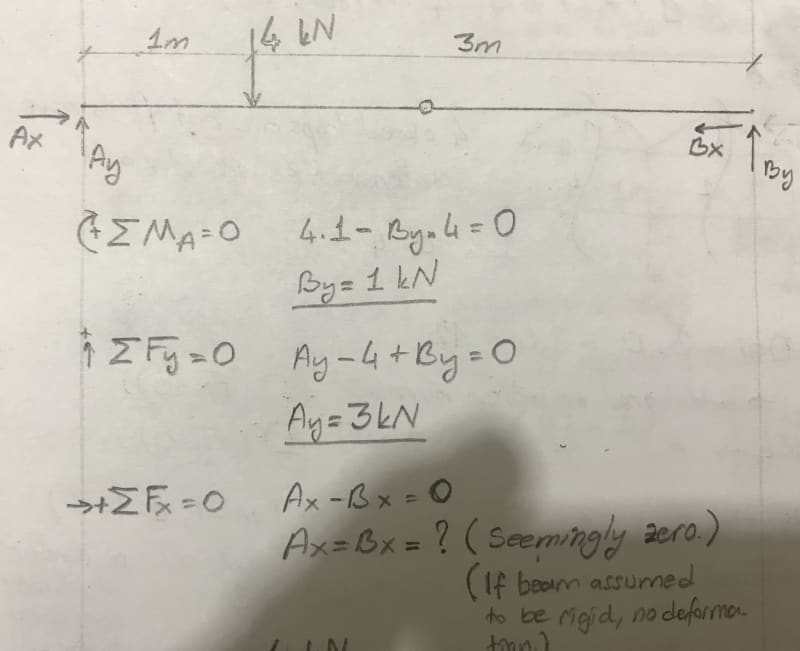 1m 4 kN 3m
Ax Ay Bx By
(+ ΣMA=0 4.1 - By.4 = 0
By= 1 kN
+↑ ΣFy=0 Ay-4+By=0
Ay=3kN
→+ΣFx=0 Ax-Bx=0
Ax=Bx=? (Seemingly zero.)
(If beam assumed
to be rigid, no deforma-
tion.)
kN